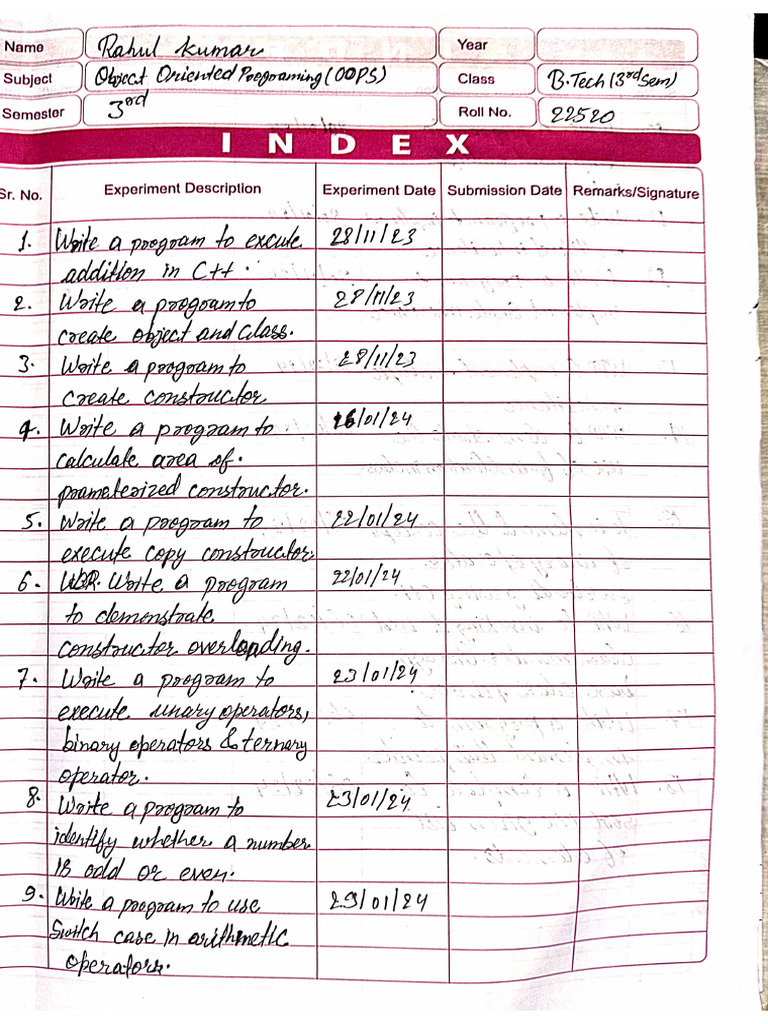 Name Rahul Kumar Year
Subject Object Oriented Programing (OOPS) Class B.Tech (3rd Sem)
Semester 3rd Roll No. 22520
INDEX
Sr. No. Experiment Description Experiment Date Submission Date Remarks/Signature
1. Write a program to excute 28/11/23
addition in C++.
2. Write a program to 28/11/23
create object and class.
3. Write a program to 28/11/23
create constructor
4. Write a program to 16/01/24
calculate area of.
prameterized constructor.
5. Write a program to 22/01/24
execute copy constructor.
6. Write a program 22/01/24
to demonstrate
constructor overloading.
7. Write a program to 23/01/24
execute unary operators,
binary operators & ternary
operator.
8. Write a program to 23/01/24
identify whether a number
is odd or even.
9. Write a program to use 29/01/24
Switch case in arithmetic
operators.